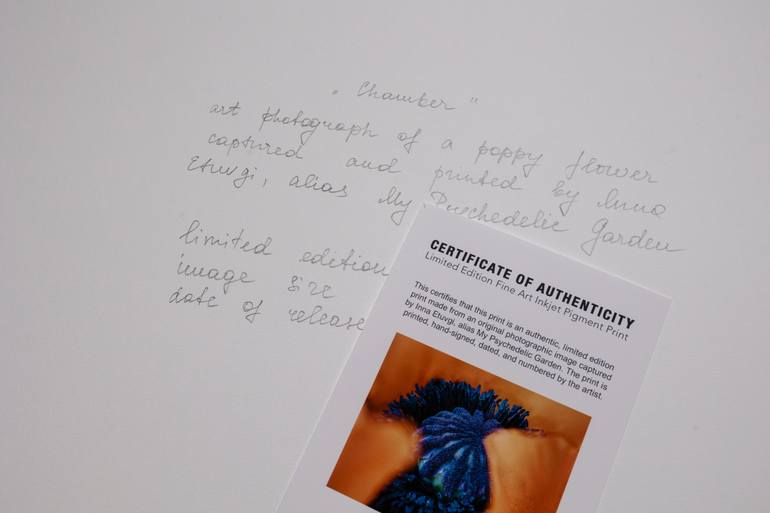 "Chamber"
art photograph of a poppy flower
captured and printed by Inna
Etuvgi, alias My Psychedelic Garden
limited edition
image size
date of release
CERTIFICATE OF AUTHENTICITY
Limited Edition Fine Art Inkjet Pigment Print
This certifies that this print is an authentic, limited edition
print made from an original photographic image captured
by Inna Etuvgi, alias My Psychedelic Garden. The print is
printed, hand-signed, dated, and numbered by the artist.